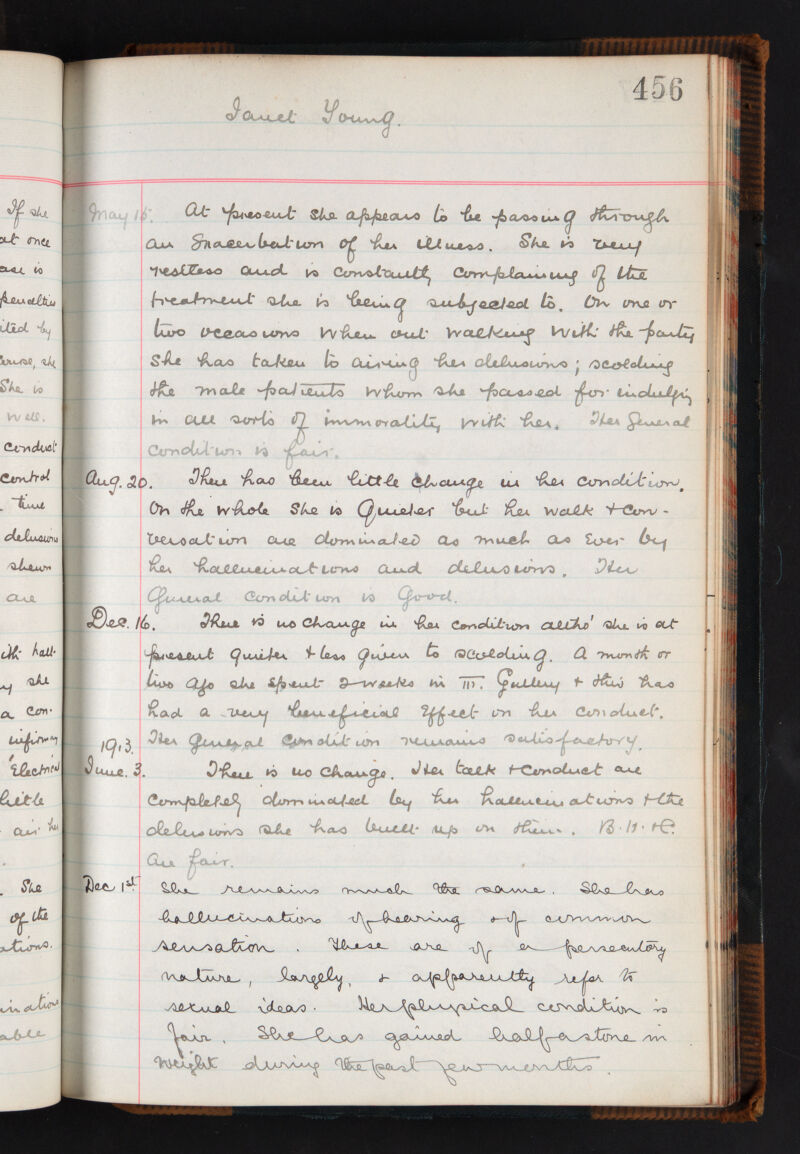 If she
at once
ase is
penalties
ited by
ourse, she
She is
well.
conduct
control
time
delusions
shewn
are
ith hall-
y she
a con-
infirmary
'Electrical
little
air her
. She
of the
ations.
ination
able
456
Janet Young.
May 15. At present she appears to be passing through
an Exacerbation of her illness. She is very
restless and is constantly complaining of the
treatment she is being subjected to. On one or
two occasions when out walking with the party
She has taken to airing her delusions; scolding
the male patients whom she passed for indulging
in all sorts of immorality with her. Her General
condition is fair.
Aug. 20. There has been little change in her condition.
On the whole She is Quieter but her walk & Con-
versation are dominated as much as Ever by
her hallucinations and delusions. Her
General Condition is Good.
Dec. 16. There is no change in her condition altho' she is at
present quieter & less given to scolding. A month or
two ago she spent 2 weeks in III. Gallery & this has
had a very beneficial Effect on her conduct.
Her general condition remains satisfactory.
1913.
June. 3. There is no change. Her talk & conduct are
completely dominated by her hallucinations & the
delusions she has built up on them. B.H. & C.
are fair.
Dec 1st She remains much the same. She has
hallucinations of hearing & of common
sensation. These are of a persecutory
nature, largely, & apparently refer to
sexual ideas. Her physical condition is
fair. She has gained half a stone in
weight during the past few months.